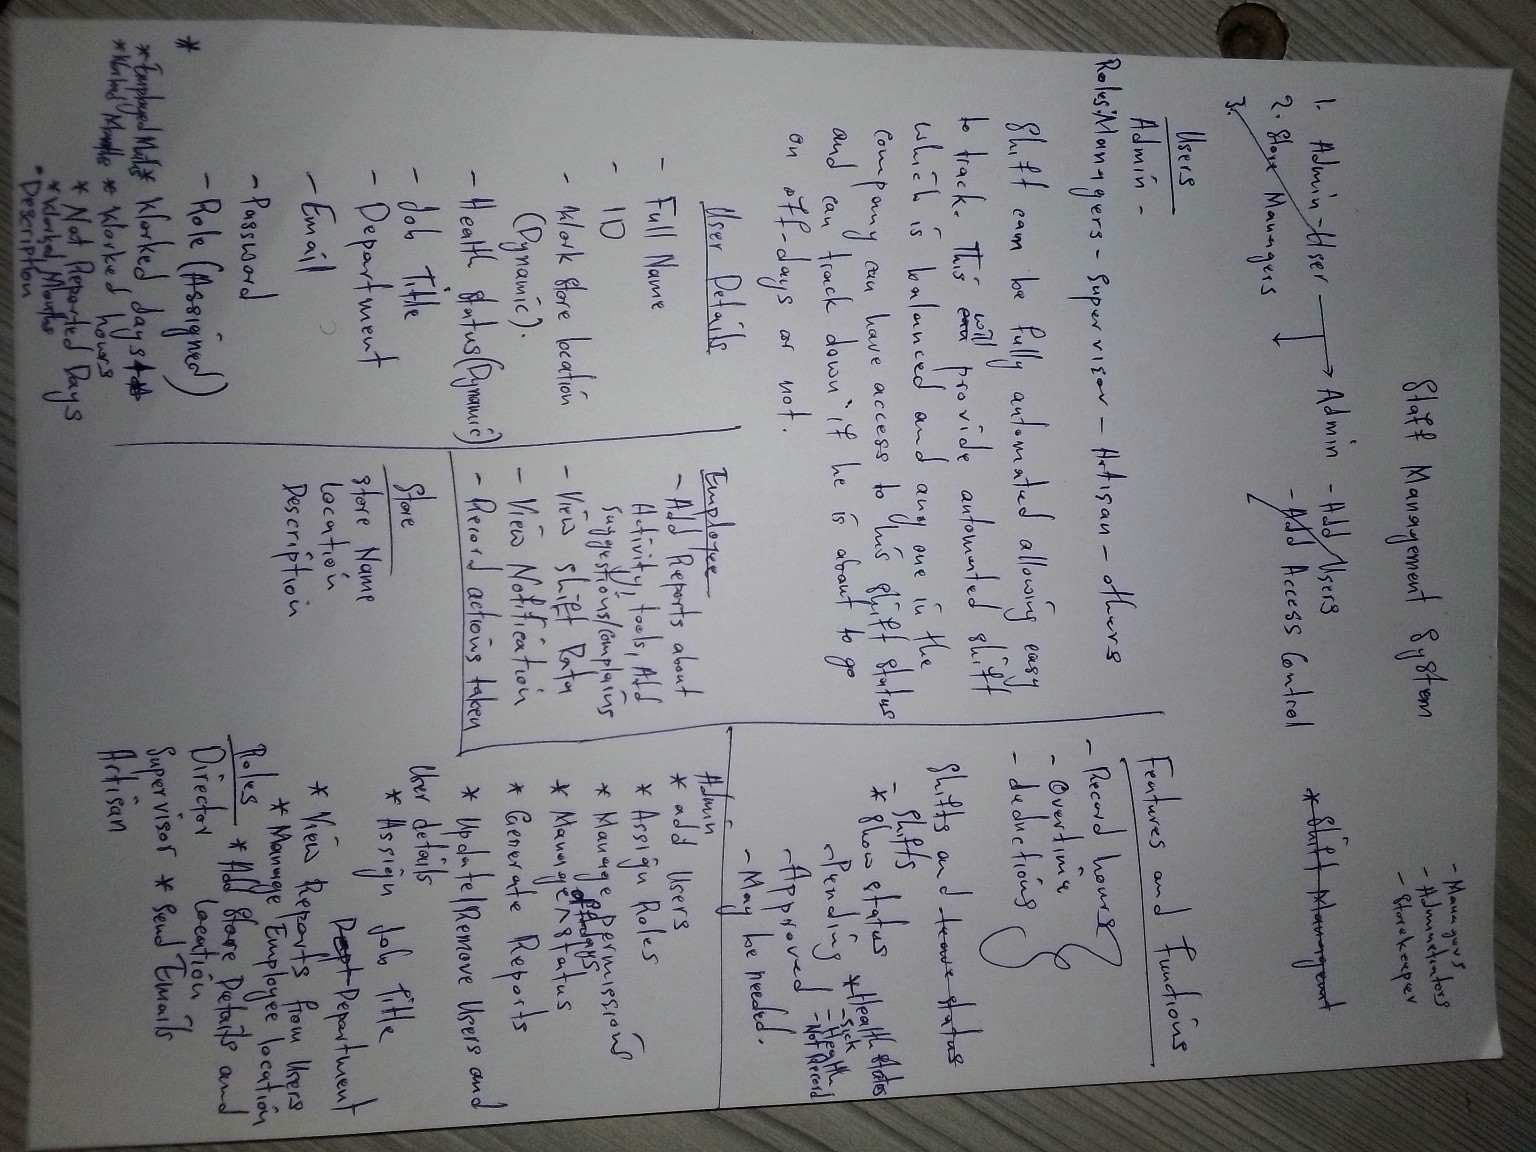 Staff Management System
- Managers
- Adminetrators
- Storekeeper
1. Admin - User → Admin - Add Users
2. Store Manages - Add Access Control
3.
* Shift Management
Users
Admin -
Roles: Managers - Supervisor - Artisan - others
Shift can be fully automated allowing easy
to track. This will provide automated shift
which is balanced and any one in the
company can have access to his shift status
and can track down if he is about to go
on off-days or not.
User Details
- Full Name
- ID
- Work Store Location
(Dynamic).
- Health Status (Dynamic)
- Job Title
- Department
- Email
- Password
- Role (Assigned)
* Worked days
* Worked hours
* Not Reported Days
* Worked Months
* Description
Employee
- Add Reports about
Activity, tools, Add
Suggestions/Complains
- View Shift Data
- View Notification
- Record actions taken
Store
Store Name
Location
Description
Features and functions
- Record hours
- Overtime
- deductions
Shifts and leave status
- Shifts
* Show status
- Pending
- Approved
- May be needed.
* Health States
- Sick
- Health
- Not Record
Admin
* add Users
* Assign Roles
* Manage permissions
* Manage offdays status
* Generate Reports
* Update/Remove Users and
User details
* Assign Job Title
Dept Department
* View Reports from Users
* Manage Employee location
* Add Store Details and
Location
* Send Emails
Roles
Director
Supervisor
Artisan